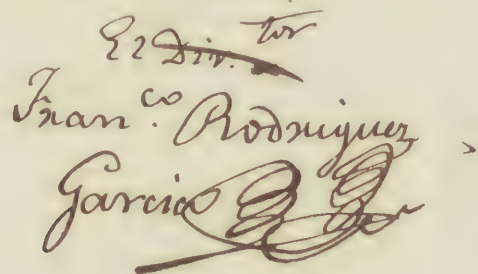 El Dir.tor
Fran.co Rodriguez
Garcia